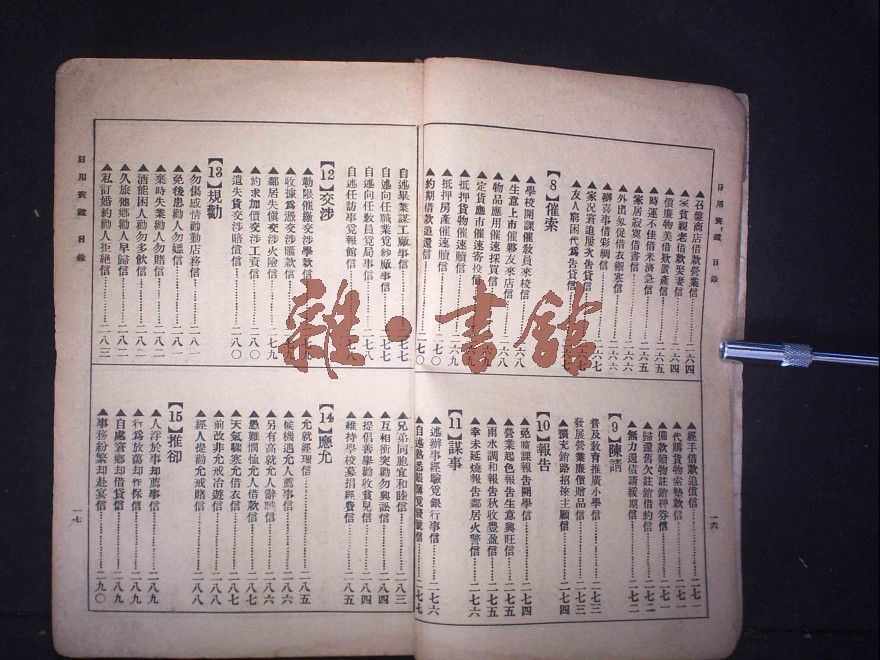 日用寶鑑　目錄
▲召盤商店借款營業信………二六四
▲家貧親老借款娶妻信………二六四
▲價廉物美借款置產信………二六五
▲時運不佳借米濟急信………二六五
▲家居寂寞借書信………二六六
▲外出匆促借衣
▲辦喜事借彩綢信
▲家況窘迫屢次告貸信
▲友人窮困代爲告貸信
【8】催索
▲學校開課催敎員來校信
▲生意上市催夥友來店信
▲物品應用催速採買信
▲定貨應市催速寄投信
▲抵押貨物催速贖信
▲抵押房產催速贖信………二七〇
▲約期借款追還信………二七〇
▲經手借款追償信………二七一
▲代購貨物索墊款信………二七一
▲備款贖物註銷押券信………二七一
▲歸還舊欠註銷借約信………二七二
▲無力還債請緩期信………二七二
【9】陳請
普及敎育推廣小學信………二七三
發展營業廉價贈品信………二七三
▲擴充銷路招徠主顧信………二七四
【10】報告
▲免曠課報告開學信………二七四
▲營業起色報告生意興旺信………二七五
▲雨水調和報告秋收豐盈信………二七五
▲幸未延燒報告鄰居火警信………二七六
【11】謀事
▲述辦事經驗覓銀行事信………二七六
▲自述熟悉
一六
自述畢業謀工廠事信………二七七
自述向任職業覓紗廠事信………二七七
自述向任敎員覓局事信………二七八
自述任訪事覓報館信
【12】交涉
▲勒限催繳交涉學款信
▲收據爲憑交涉匯款信
▲鄰居失愼交涉火險信………二七九
▲約求加價交涉工資信………二八〇
▲遺失貨交涉賠償信………二八〇
【13】規勸
▲勿傷感情勸勤店務信………二八一
▲免後患勸人勿嫖信………二八一
▲棄時失業勸人勿賭信………二八二
▲酒能困人勸勿多飲信………二八二
▲久旅他鄉勸人早歸信………二八二
▲私訂婚約勸人拒絕信………二八三
▲兄弟同胞宜和睦信………二八三
▲互相衝突勸勿興訟信………二八四
▲提倡善舉勸收貧兒信………二八四
▲維持學校募捐經費信………二八五
【14】應允
▲允就經理信………二八五
▲候機遇允人薦事信………二八六
▲另有高就允人辭職信………二八六
▲愚難憫恤允人借款信………二八七
▲天氣驟寒允借衣信………二八七
▲前改非允戒冶遊信………二八八
▲經人提勸允戒賭信………二八八
【15】推卻
▲人浮於事却薦事信………二八九
▲行爲放蕩却作保信………二八九
▲自處窘鄉却借貸信………二八九
▲事務紛繁却赴宴信………二九〇
日用寶鑑　目錄
一七
雜·書館